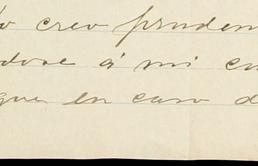 creo pruden
dose á mi cu
que en caso d